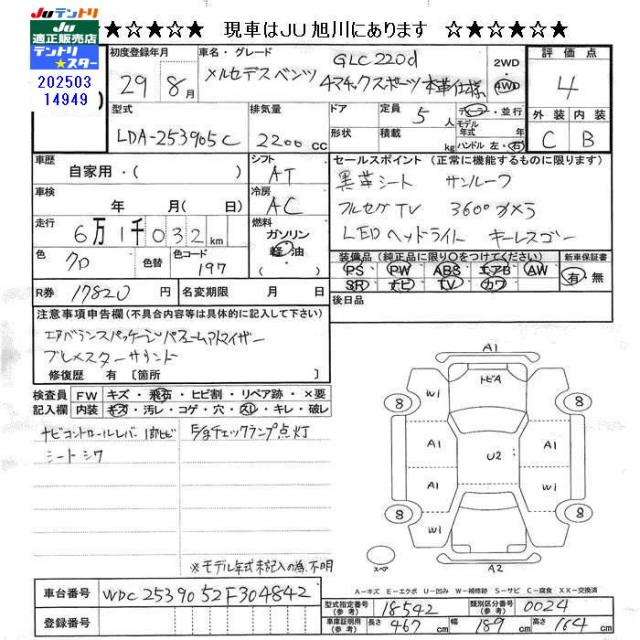 JUテントリ
Ju
適正販売店
テントリ
★スター
★☆★☆★ 現車はJU旭川にあります ☆★☆★☆★
202503
14949
初度登録年月
29年8月
車名・グレード
メルセデスベンツ
GLC220d
4マチックスポーツ本革仕様
2WD
4WD
評価点
4
型式
LDA-253905C
排気量
2200cc
ドア
形状
定員 5人
積載 kg
ディーラー・並行
モデル年式 年
ハンドル 左・右
外装 内装
C B
車歴
自家用・( )
シフト
AT
セールスポイント(正常に機能するものに限ります)
黒革シート サンルーフ
フルセグTV 360°カメラ
LEDヘッドライト キーレスゴー
車検
年 月(広)
冷房
AC
走行
6万1千032km
燃料
ガソリン
軽油
色
クロ
色替
色コード
197
装備品(純正品に限り○をつけてください)
PS・PW・ABS・エアB・AW
SR・ナビ・TV・カワ
新車保証書
有・無
R券 17820円
名変期限 月 日
後日品
注意事項申告欄(不具合内容等は具体的に記入して下さい)
エアバランスパッケージ パフュームアトマイザー
ブルメスターサウンド
修復歴 有〔箇所 〕
検査員
記入欄
FW キズ・飛石・ヒビ割・リペア跡・×要
内装 キズ・汚レ・コゲ・穴・スレ・キレ・破レ
ナビコントロールレバー1部ヒビ
E/gチェックランプ点灯
シートシワ
※モデル年式未記入の為、不明
A1
トビA
W1
W1
8
8
A1
A1
U2
A1
W1
8
8
スペア
A2
A-キズ E-エクボ U-凹み W-補修跡 S-サビ C-腐食 XX-交換済
車台番号 WDC2539052F304842
登録番号
型式指定番号(参考) 18542
類別区分番号(参考) 0024
車車証明用(参考) 長さ 467cm 幅 189cm 高さ 164cm